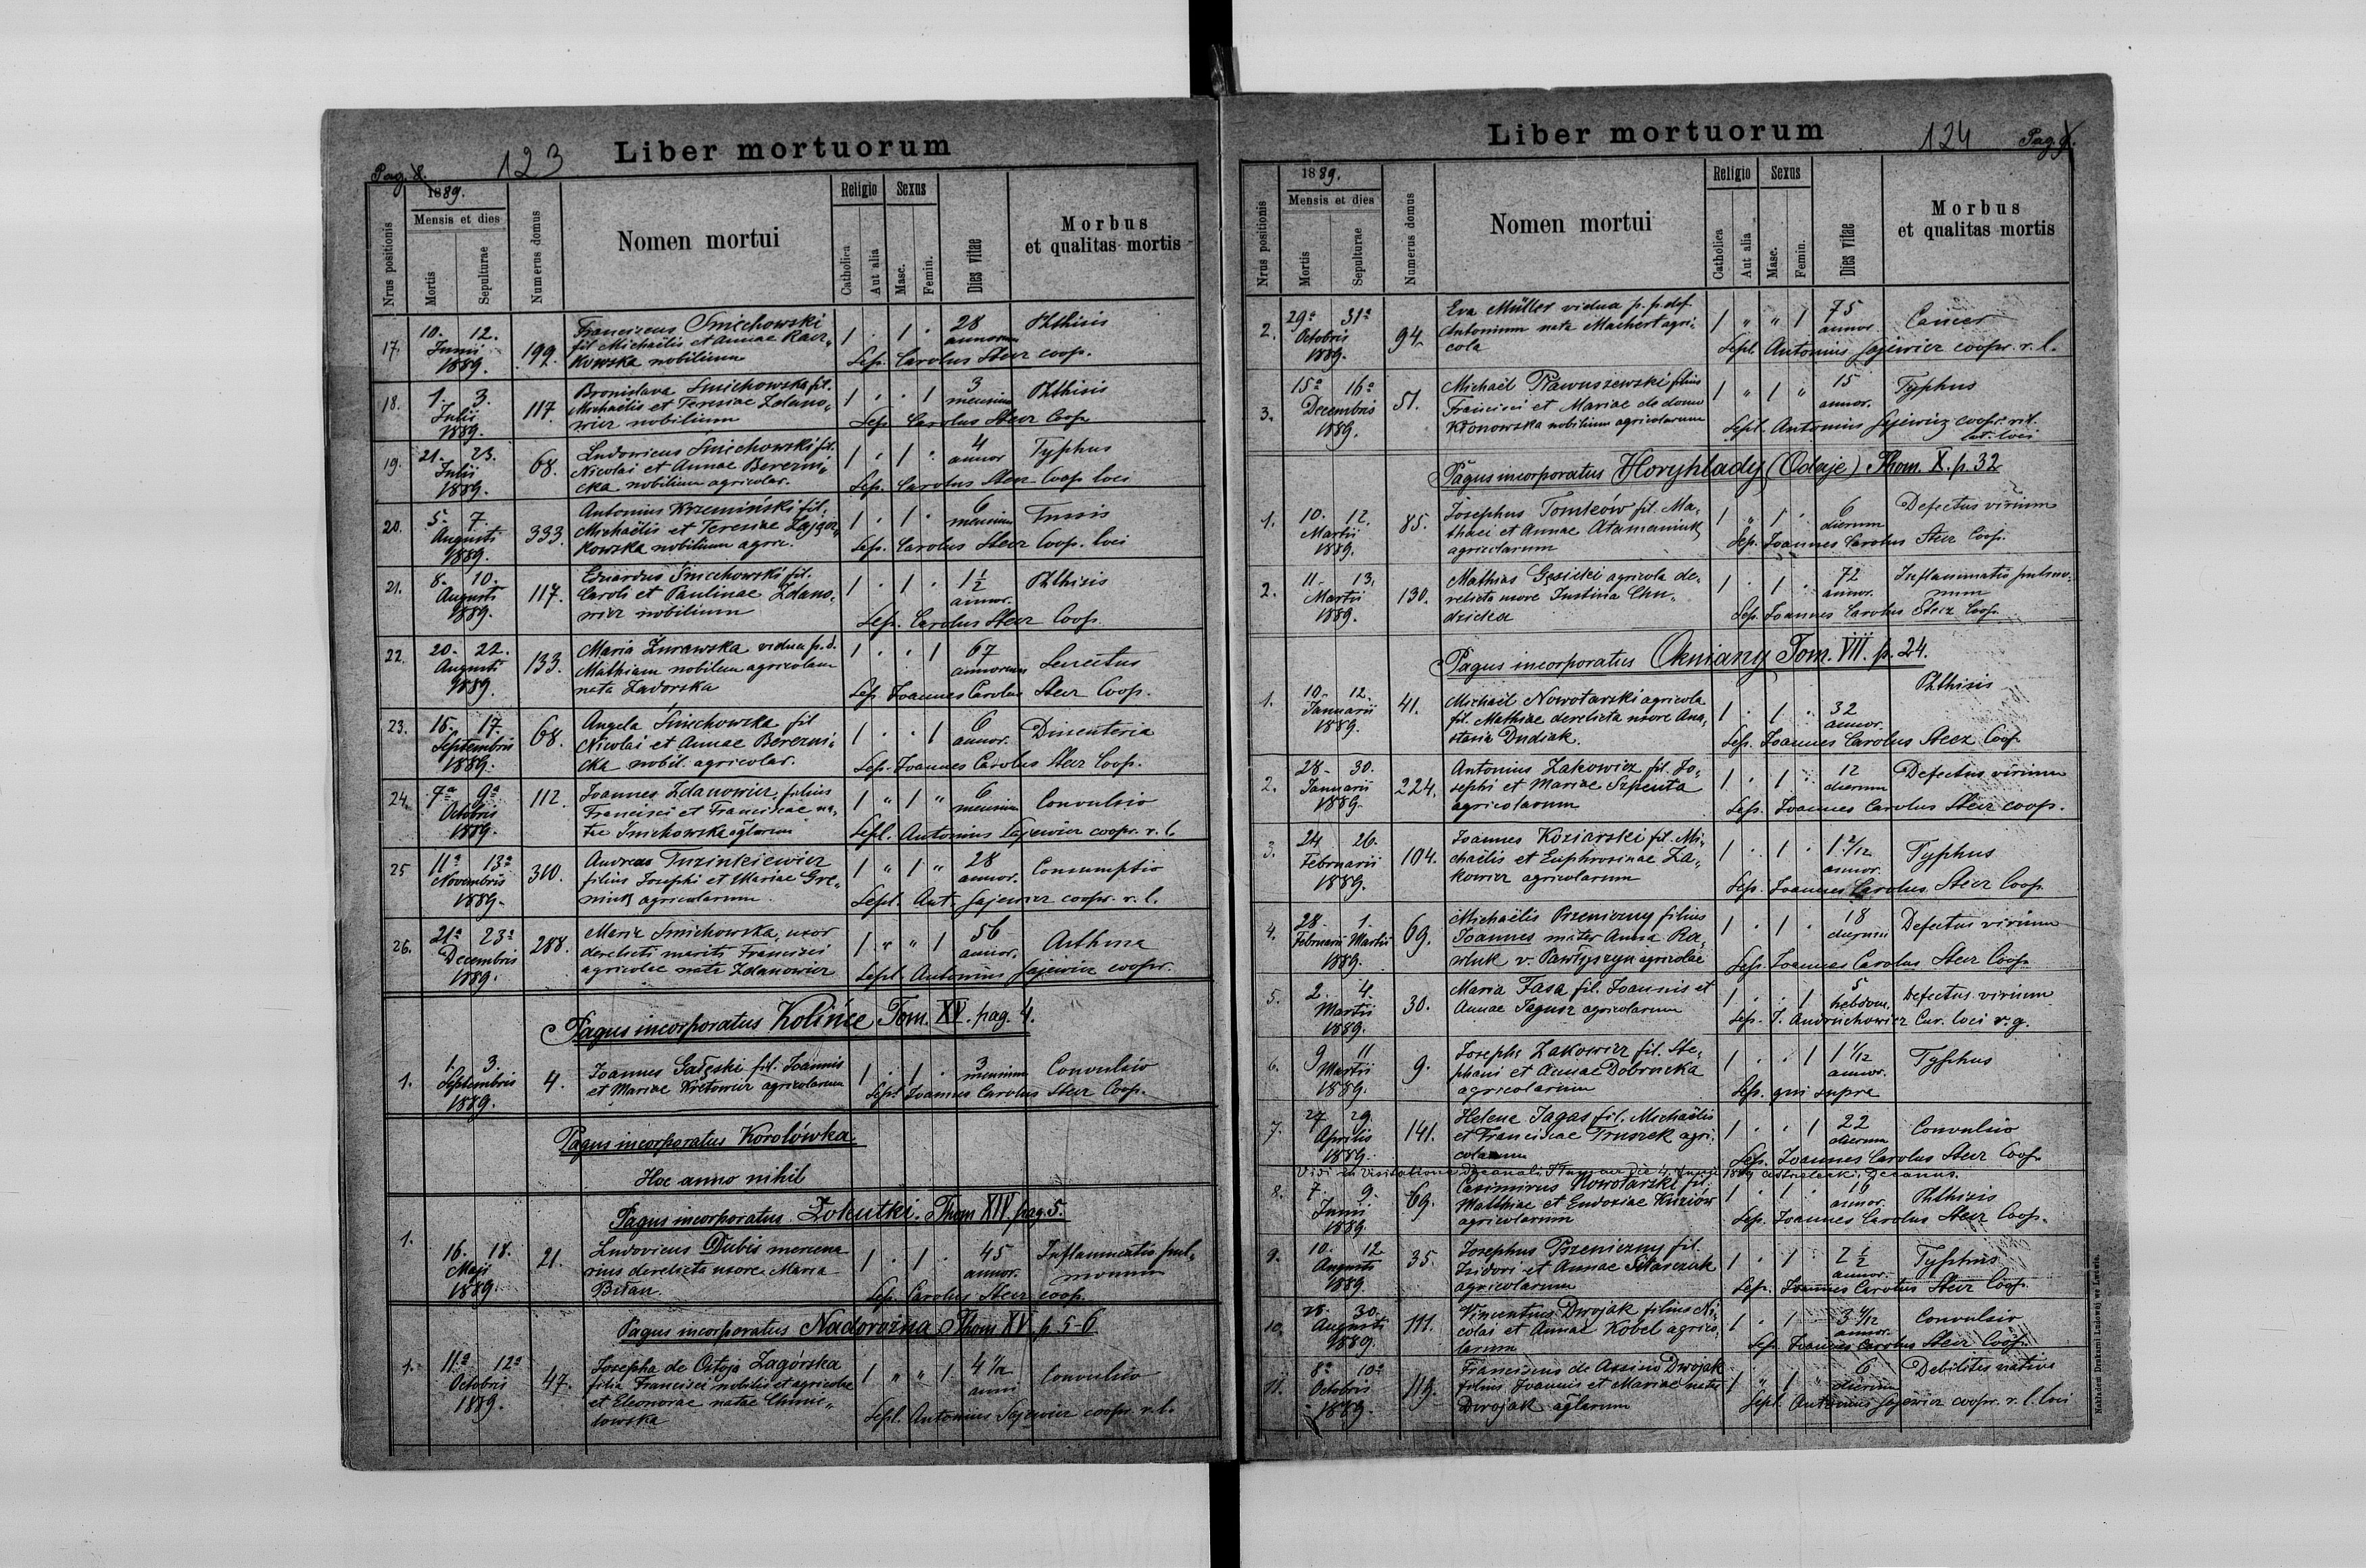 Liber mortuorum
Pag. 8.
123
1889.
Nrus positionis
Mensis et dies
Mortis
Sepulturae
Numerus domus
Nomen mortui
Religio
Catholica
Aut alia
Sexus
Masc.
Femin.
Dies vitae
Morbus
et qualitas mortis
17. 10. 12. Junii 1889. 199. Franciscus Śmichowski 1 . 1 . 28 annorum Phthisis
fil. Michaëlis et Annae Racz-
kowska nobilium
Sep. Carolus Sterz coop.
18. 1. 3. Julii 1889. 117. Bronislava Śmichowska fil. 1 . . 1 3 mensium Phthisis
Michaëlis et Teresiae Zdano-
wicz nobilium
Sep. Carolus Sterz Coop.
19. 21. 23. Julii 1889. 68. Ludovicus Śmichowski fil. 1 . 1 . 4 annor Typhus
Nicolai et Annae Berezni-
cka nobilium agricolar.
Sep. Carolus Sterz Coop loci
20. 5. 7. Augusti 1889. 333. Antonius Krzemiński fil. 1 . 1 . 6 mensium Tussis
Michaëlis et Teresiae Zającz-
kowska nobilium agric.
Sep. Carolus Sterz Coop. loci
21. 8. 10. Augusti 1889. 117. Eduardus Śmichowski fil. 1 . 1 . 1 1/2 annor. Phthisis
Caroli et Paulinae Zdano-
wicz nobilium
Sep. Carolus Sterz Coop.
22. 20. 22. Augusti 1889. 133. Maria Żurawska vidua p. d. 1 . . 1 67 annorum Senectus
Mathiam nobilem agricolam
nata Zadorska
Sep. Joannes Carolus Sterz Coop.
23. 15. 17. Septembris 1889. 68. Angela Śmichowska fil 1 . . 1 6 annor. Dissenteria
Nicolai et Annae Berezni-
cka nobil. agricolar.
Sep. Joannes Carolus Sterz Coop.
24. 7a 9a Octobris 1889. 112. Joannes Zdanowicz filius 1 " 1 " 6 mensium Convulsio
Francisci et Franciscae na-
tae Śmichowska aglarum
Sepl. Antonius Sajewicz coopr. r. l.
25 11a 13a Novembris 1889. 310. Andreas Tuzinkiewicz 1 " 1 " 28 annor. Consumptio
filius Josephi et Mariae Gre-
niuk agricolarum.
Sepl. Ant. Sajewicz coopr. r. l.
26. 21a 23a Decembris 1889. 288. Maria Śmichowska, uxor 1 " " 1 56 annor. Asthma
derelicti mariti Francisci
agricolae nata Zdanowicz
Sepl. Antonius Sajewicz coopr.
Pagus incorporatus Kolińce Tom. XV. pag. 4.
1. 1. 3. Septembris 1889. 4. Joannes Gałęski fil. Joannis 1 . 1 . 3 mensium Convulsio
et Mariae Kretowicz agricolarum
Sepl. Joannes Carolus Sterz Coop.
Pagus incorporatus Korolówka
Hoc anno nihil
Pagus incorporatus Łokutki. Thom XIV pag. 5.
1. 16. 18. Maji 1889. 21. Ludovicus Dubis mercena 1 . 1 . 45 annor. Inflammatio pul-
rius derelicta uxore Maria monum
Biłan
Sep. Carolus Sterz coop.
Pagus incorporatus Nadorożna Thom XV p. 5-6
1. 11a 12a Octobris 1889. 47. Josepha de Ostoja Zagórska 1 " " 1 4 1/2 anni Convulsio
filia Francisci nobilis et agricolae
et Eleonorae natae Chmie-
lowska
Sepl. Antonius Sajewicz coopr. r. l.
Liber mortuorum
124
Pag. 9.
1889.
Nrus positionis
Mensis et dies
Mortis
Sepulturae
Numerus domus
Nomen mortui
Religio
Catholica
Aut alia
Sexus
Masc.
Femin.
Dies vitae
Morbus
et qualitas mortis
2. 29a 31a Octobris 1889. 94. Eva Müller vidua p. p. def. 1 " " 1 75 annor. Cancer
Antonium nata Machert agri-
cola
Sepl. Antonius Sajewicz coopr. r. l.
3. 15a 16a Decembris 1889. 51. Michaël Pławuszewski filius 1 " 1 " 15 annor. Typhus
Francisci et Mariae de domo
Kłonowska nobilium agricolarum
Sepl. Antonius Sajewicz coopr. rit.
lat. loci
Pagus incorporatus Horyhlady (Odaje) Thom. X. p. 32
1. 10. 12. Martii 1889. 85. Josephus Tomków fil. Ma- 1 " 1 . 6 dierum Defectus virium
thaei et Annae Atamaniuk
agricolarum
Sep. Joannes Carolus Sterz Coop.
2. 11. 13. Martii 1889. 130. Mathias Gęsicki agricola de- 1 . 1 . 72 annor. Inflammatio pulmo-
relicta uxore Justina Chu- num
dzicka
Sep. Joannes Carolus Sterz Coop.
Pagus incorporatus Okniany Tom. VII. p. 24.
1. 10. 12. Januarii 1889. 41. Michaël Nowotarski agricola 1 . 1 . 32 annor. Phthisis
fil. Mathiae derelicta uxore Ana-
stasia Dudiak.
Sep. Joannes Carolus Sterz Coop
2. 28. 30. Januarii 1889. 224. Antonius Zakowicz fil. Jo- 1 . 1 . 12 dierum Defectus virium
sephi et Mariae Szpenta
agricolarum
Sep. Joannes Carolus Sterz coop.
3. 24 26. Februarii 1889. 104. Joannes Koziarski fil. Mi- 1 . 1 . 1 2/12 annor. Typhus
chaëlis et Euphrosinae Za-
kowicz agricolarum
Sep. Joannes Carolus Sterz Coop.
4. 28. 1. Februarii Martii 1889. 69. Michaëlis Pszeniczny filius 1 . 1 . 18 dierum Defectus virium
Joannes mater Anna
v. Pawłyszyn agricolae
Sep. Joannes Carolus Sterz Coop.
5. 2. 4. Martii 1889. 30. Maria Fasa fil. Joannis et 1 . . 1 5 hebdom. Defectus virium
Annae Jagusz agricolarum
Sep. J. Andruchowicz Cur. loci r. g.
6. 9 11 Martii 1889. 9. Josepha Zakowicz fil. Ste- 1 . . 1 1 1/12 annor. Typhus
phani et Annae Dobrucka
agricolarum
Sep. qui supra
7. 27 29 Aprilis 1889. 141. Helena Jagas fil. Michaëlis 1 . . 1 22 dierum Convulsio
et Franciscae Truszek agri-
colarum
Sep. Joannes Carolus Sterz Coop.
Vidi in visitatione Decanali die 4 Junii 1889 Decanus.
8. 7 9. Junii 1889. 69. Casimirus Nowotarski fil. 1 . 1 . 16 annor. Phthisis
Matthiae et Eudoxiae Kuziów
agricolarum
Sep. Joannes Carolus Sterz Coop.
9. 10. 12 Augusti 1889. 35. Josephus Pszeniczny fil. 1 . 1 2 1/2 annor. Typhus
Izidori et Annae Ślusarczuk
agricolarum
Sep. Joannes Carolus Sterz Coop.
10. 28. 30. Augusti 1889. 111. Vincentius Dwojak filius Ni- 1 . 1 3 4/12 annor. Convulsio
colai et Annae Kobel agrico-
larum
Sep. Joannes Carolus Sterz Coop.
11. 8a 10a Octobris 1889. 119. Franciscus de Assisio Dwojak 1 " 1 " 6 dierum Debilitas nativa
filius Joannis et Mariae nata
Dwojak aglarum
Sepl. Antonius Sajewicz coopr. r. l. loci
Nakładem Drukarni Ludowej we Lwowie.